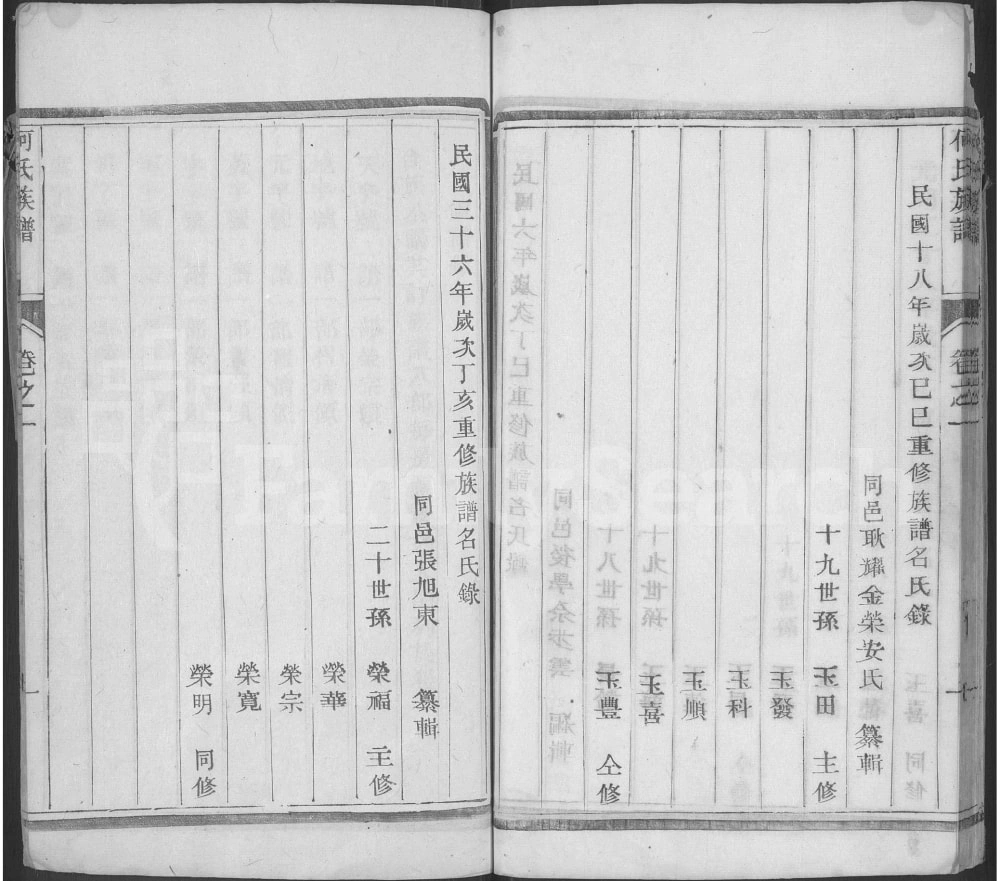 何氏族譜
卷之二
民國十八年歲次己巳重修族譜名氏錄
同邑耿耀金榮安氏 纂輯
十九世孫 玉田 主修
玉發
玉科
玉順
玉喜
玉豐 仝修
民國三十六年歲次丁亥重修族譜名氏錄
同邑張旭東 纂輯
二十世孫 榮福 主修
榮華
榮宗
榮寬
榮明 同修
何氏族譜
卷之二